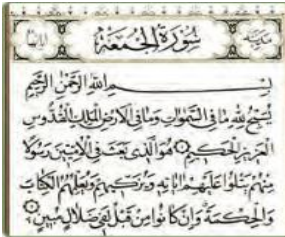 سُورَةُ الْجُمُعَةِ
بِسْمِ اللَّهِ الرَّحْمَٰنِ الرَّحِيمِ
يُسَبِّحُ لِلَّهِ مَا فِي السَّمَٰوَاتِ وَمَا فِي الْأَرْضِ الْمَلِكِ الْقُدُّوسِ
الْعَزِيزِ الْحَكِيمِ ۝ هُوَ الَّذِي بَعَثَ فِي الْأُمِّيِّينَ رَسُولًا
مِنْهُمْ يَتْلُوا عَلَيْهِمْ آيَاتِهِ وَيُزَكِّيهِمْ وَيُعَلِّمُهُمُ الْكِتَابَ
وَالْحِكْمَةَ وَإِنْ كَانُوا مِنْ قَبْلُ لَفِي ضَلَالٍ مُبِينٍ ۝